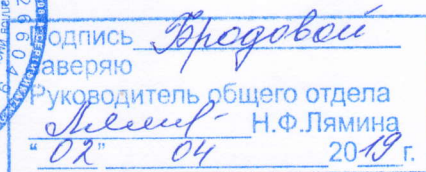 Подпись Бродовой
Заверяю
Руководитель общего отдела
Н.Ф.Лямина
"02" 04 2019 г.